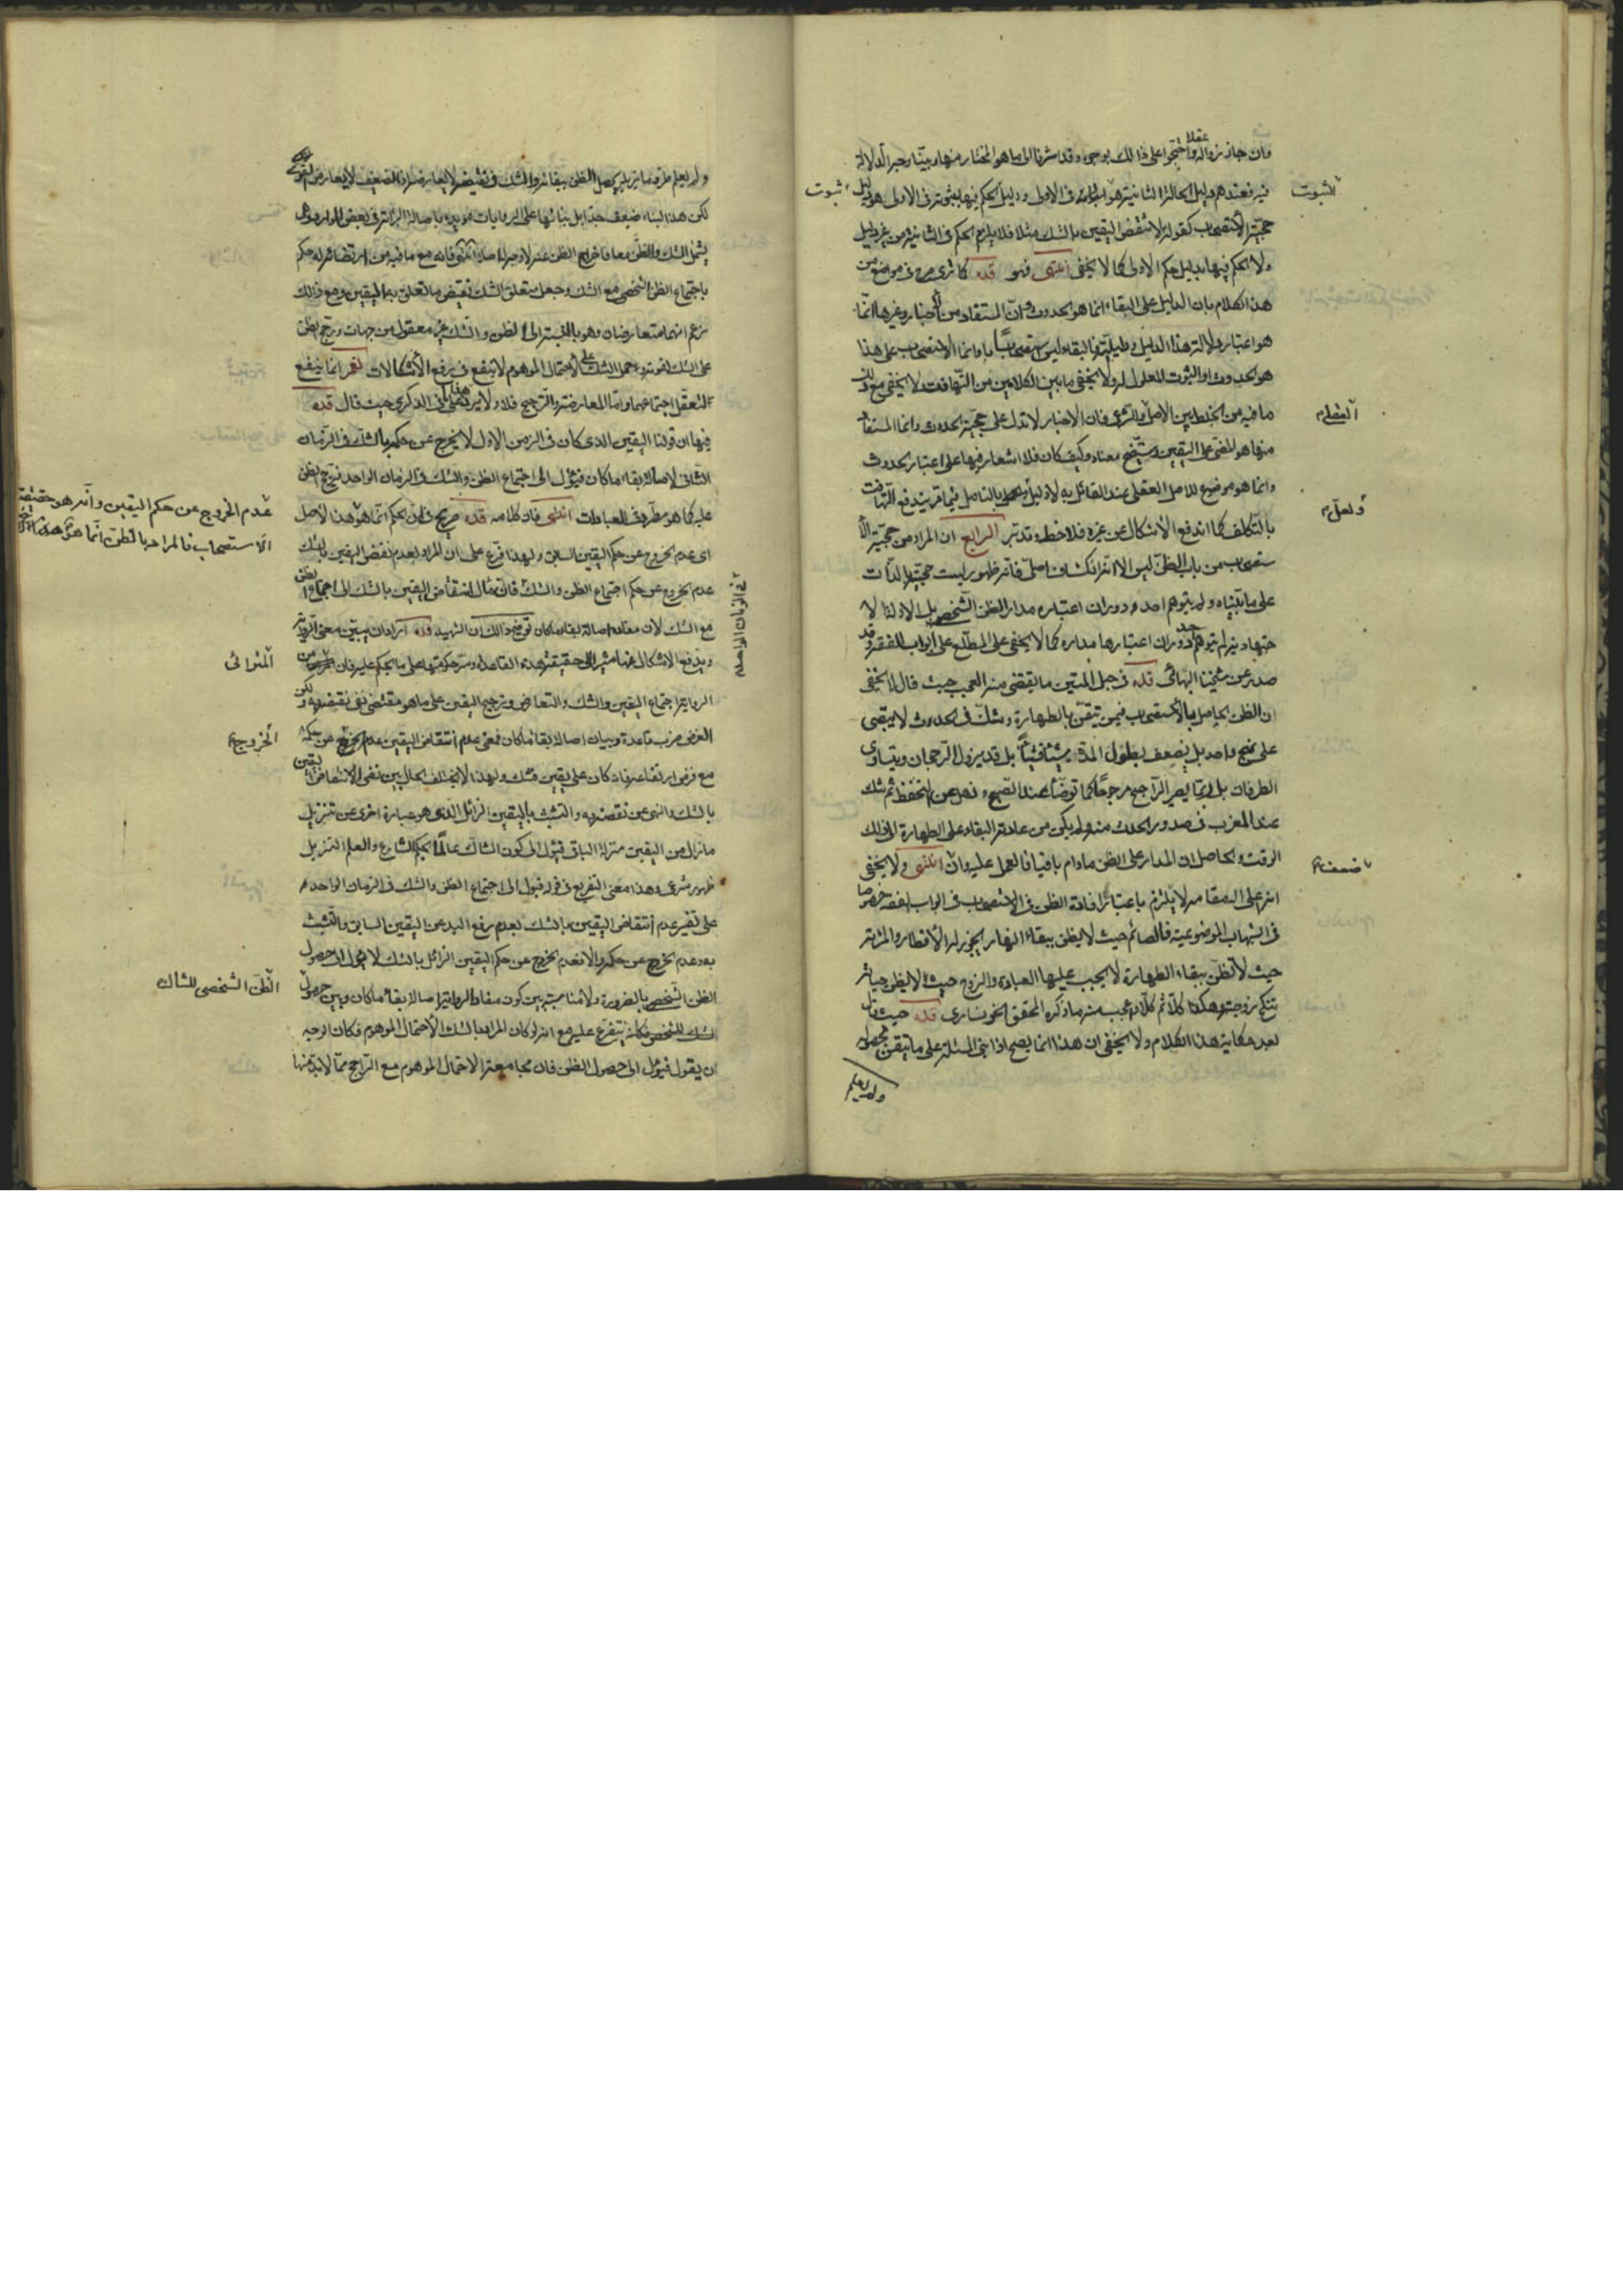 وان جاز زواله عقلا واحتجوا على ذلك بوجوه وقد اشرنا الى ما هو المختار منها وبيّنا وجه الدلالة
فيه فعندهم دليل الحالة الثانية هو في الاولى ودليل الحكم فيها بثبوته في الاولى هو دليل
حجّية الاستصحاب كقوله لا تنقض اليقين بالشك مثلا فلا يلزم الحكم في الثانية من غير دليل
ولا الحكم فيها بدليل حكم الاولى كما لا يخفى انتهى فهو قده كما ترى صرح في مواضع من
هذا الكلام بان الدليل على البقاء انما هو الحدوث وانّ المستفاد من الأخبار وغيرها انّما
هو اعتبار دلالة هذا الدليل البقاء ليس استصحاباً وانما الاستصحاب على هذا
هو الحدوث او الثبوت المعلول له ولا يخفى ما بين الكلامين من التّهافت ولا يخفى مع ذلك
ما فيه من الخلط بين الاصل والشرعى فان الاخبار لا تدل على حجّية الحدوث وانما المستفاد
منها هو المضىّ على اليقين وستتّضح معناه وكيف كان فلا اشعار فيها على اعتبار الحدوث
وانما هو موضوع للاصل العقلى عند القائل به لا دليل بالتامل فيما قربنا يندفع التهافت
بالتّكلف كما اندفع الاشكال عن غيره فلاحظ وتدبّر الرابع ان المراد من حجّية الا
ستصحاب من باب الظنّ ليس الا انّه انكشاف اصلىّ فانّه ظهور ليست حجّيتها لذات
على ما بيّناه ولم يتوهم احد دوران اعتباره مدار الظن الشخصى بل الادلة الا
جتهادية لم يتوهم احد دوران اعتبارها مداره كما لا يخفى على المطّلع على ابواب الفقه وقد
صدر عن شيخنا البهائى قده في حبل المتين ما يقضى منه العجب حيث قال لا يخفى
ان الظن الحاصل بالاستصحاب فيمن تيقّن بالطهارة وشكّ في الحدث لا يبقى
على نهج واحد بل يضعف بطول المدة شيئا فشيئاً بل قد يزول الرجحان ويتساوى
الطرفان بل ربّما يصير الرّاجح مرجوحا كما توضّأ عند الصّبح وذهل عن التحفظ ثم شك
عند المغرب في صدور الحدث منه ولم يكن من عادته البقاء على الطهارة الى ذلك
الوقت والحاصل ان المدار على الظن ما دام باقيا فالعمل عليه وان انتهى ولا يخفى
انه على المقام لا يلتزم باعتبار افادة الظن في الاستصحاب في ابواب الفقه خصوصا
في الشبهات الموضوعية فالصائم حيث لا يظن ببقاء النهار يجوز له الأفطار والمرئة
حيث لا تظنّ ببقاء الطهارة لا يجب عليها العبادة والزوج حيث لا يظن حياته
تنكح زوجته وهكذا كلّا ثم كلّا واعجب منه ما ذكره المحقق الخونسارى قده حيث قال
بعد حكاية هذا الكلام ولا يخفى ان هذا انما يصح اذا ابتنى المسئلة على ما تيقّن بحصوله
ولم يعلم
الثبوت
ثبوت
العقلى
ولعلّ
ضعف
ولم يعلم طرو ما يزيله يحصل الظن ببقائه والشك في نقيضه لا يعارضه اذ الضعيف لا يعارض القوى
لكن هذا البناء ضعيف جدا بل بنائها على الروايات مؤيده باصالة البرائة في بعض الموارد وهى
يشمل الشك والظن معا فاخراج الظن عنه لا وجه له اصلا انتهى فانه مع ما فيه من ارتضائه له حكم
باجتماع الظن الشخصى مع الشك وجعل متعلق الشك نقيض ما تعلق به اليقين ومع ذلك
زعم انهما متعارضان وهو بالنسبة الى الظن والشك غير معقول من جهات وترجيح الظن
على الشك لقوته وحمل الشك على الاحتمال الموهوم لا ينفع في رفع الأشكالات نعم انما ينفع
لتعقل اجتماعهما واما المعارضة والترجيح فلا ولا يرتفع بما في الذكرى حيث قال قده
فيها ان قولنا اليقين الذى كان في الزمن الاول لا يخرج عن حكمه بالشك في الزمان
الثانى لاصالة بقاء ما كان فيؤل الى اجتماع الظن والشك في الزمان الواحد فيرجح الظن
عليه كما هو مطرد في العبادات انتهى فان كلامه قده صريح في ان الحكم انما هو هذا الاصل
اى عدم الخروج عن حكم اليقين السابق ولهذا فرع على ان المراد بعدم نقض اليقين بالشك
عدم الخروج عن حكم اجتماع الظن والشك فان مآل انتقاض اليقين بالشك الى اجتماع الظن
مع الشك لان مفاده اصالة بقاء ما كان توضيح ذلك ان الشهيد قده اراد ان يبيّن معنى الرواية
ويدفع الاشكال عنها مشيرا الى حقيقة هذه القاعدة وسر حكومتها على ما يحكم عليه فان
الرواية اجتماع اليقين والشك والتعارض وترجيح اليقين على ما هو مقتضى نفى نقيضه به ولكن
الغرض ضرب قاعدة وبيان اصالة بقاء ما كان فمعنى عدم انتقاض اليقين عدم الخروج عن حكمه
مع فرض ارتفاعه فان كان على يقين فشك ولهذا لا يختلف الحال بين نفى الانتقاض اليقين
بالشك والنهى عن نقضه به والتشبث باليقين الزائل الذى هو عبارة اخرى عن تنزيل
ما زال من اليقين منزلة الباقى فيؤل الى كون الشاك عالمًا بحكم الشارع والعلم التنزيل
ظهور شرعى وهذا معنى التفريع في قوله فيؤل الى اجتماع الظن والشك في الزمان الواحد
على تفسير عدم انتقاض اليقين بالشك بعدم رفع اليد عن اليقين السابق والتشبث
به وعدم الخروج عن حكمه والا فعدم الخروج عن حكم اليقين الزائل بالشك لا يؤل الى حصول
الظن الشخصى بالضرورة ولا مناسبة بين كون مفاد الرواية اصالة بقاء ما كان وبين حصول
الشك للشخص فكانه يتفرع عليه مع انه لو كان المراد بالشك الاحتمال الموهوم فكان الوجه
ان يقول فيؤل الى حصول الظن فان مجامعة الاحتمال الموهوم مع الراجح ممّا لا بدّ منها
عدم الخروج عن حكم اليقين وأنه هو حقيقة
الاستصحاب فالمراد بالظن انّما هو هذا
المترائى
الخروج
الظن الشخصى للشاك
في الزمان الواحد